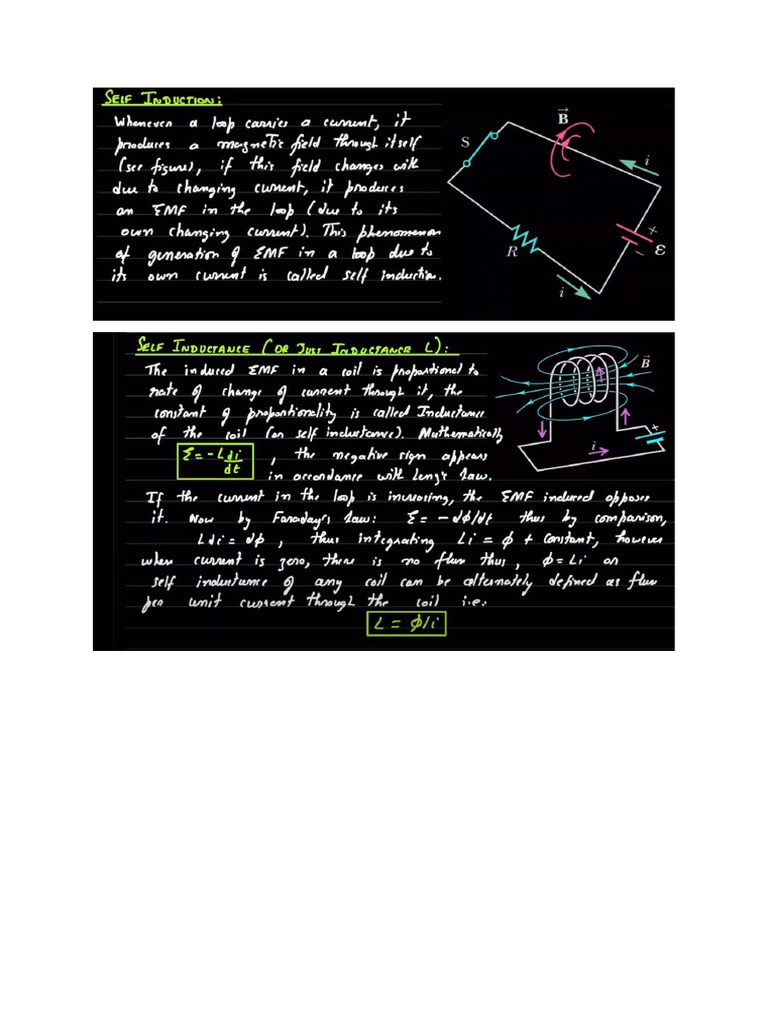 SELF INDUCTION:
Whenever a loop carries a current, it
produces a magnetic field through itself
(see figure), if this field changes with
due to changing current, it produces
an EMF in the loop (due to its
own changing current). This phenomenon
of generation of EMF in a loop due to
its own current is called self induction.
S
B
i
R
+
−
ε
i
SELF INDUCTANCE (OR JUST INDUCTANCE L):
The induced EMF in a coil is proportional to
rate of change of current through it, the
constant of proportionality is called Inductance
of the coil (or self inductance). Mathematically
ε = −L di/dt , the negative sign appears
in accordance with Lenz's law.
If the current in the loop is increasing, the EMF induced opposes
it. Now by Faraday's law: ε = −dϕ/dt thus by comparison,
Ldi = dϕ , thus integrating Li = ϕ + constant, however
when current is zero, there is no flux thus, ϕ = Li or
self inductance of any coil can be alternately defined as flux
per unit current through the coil i.e:
L = ϕ/i
B
i
+